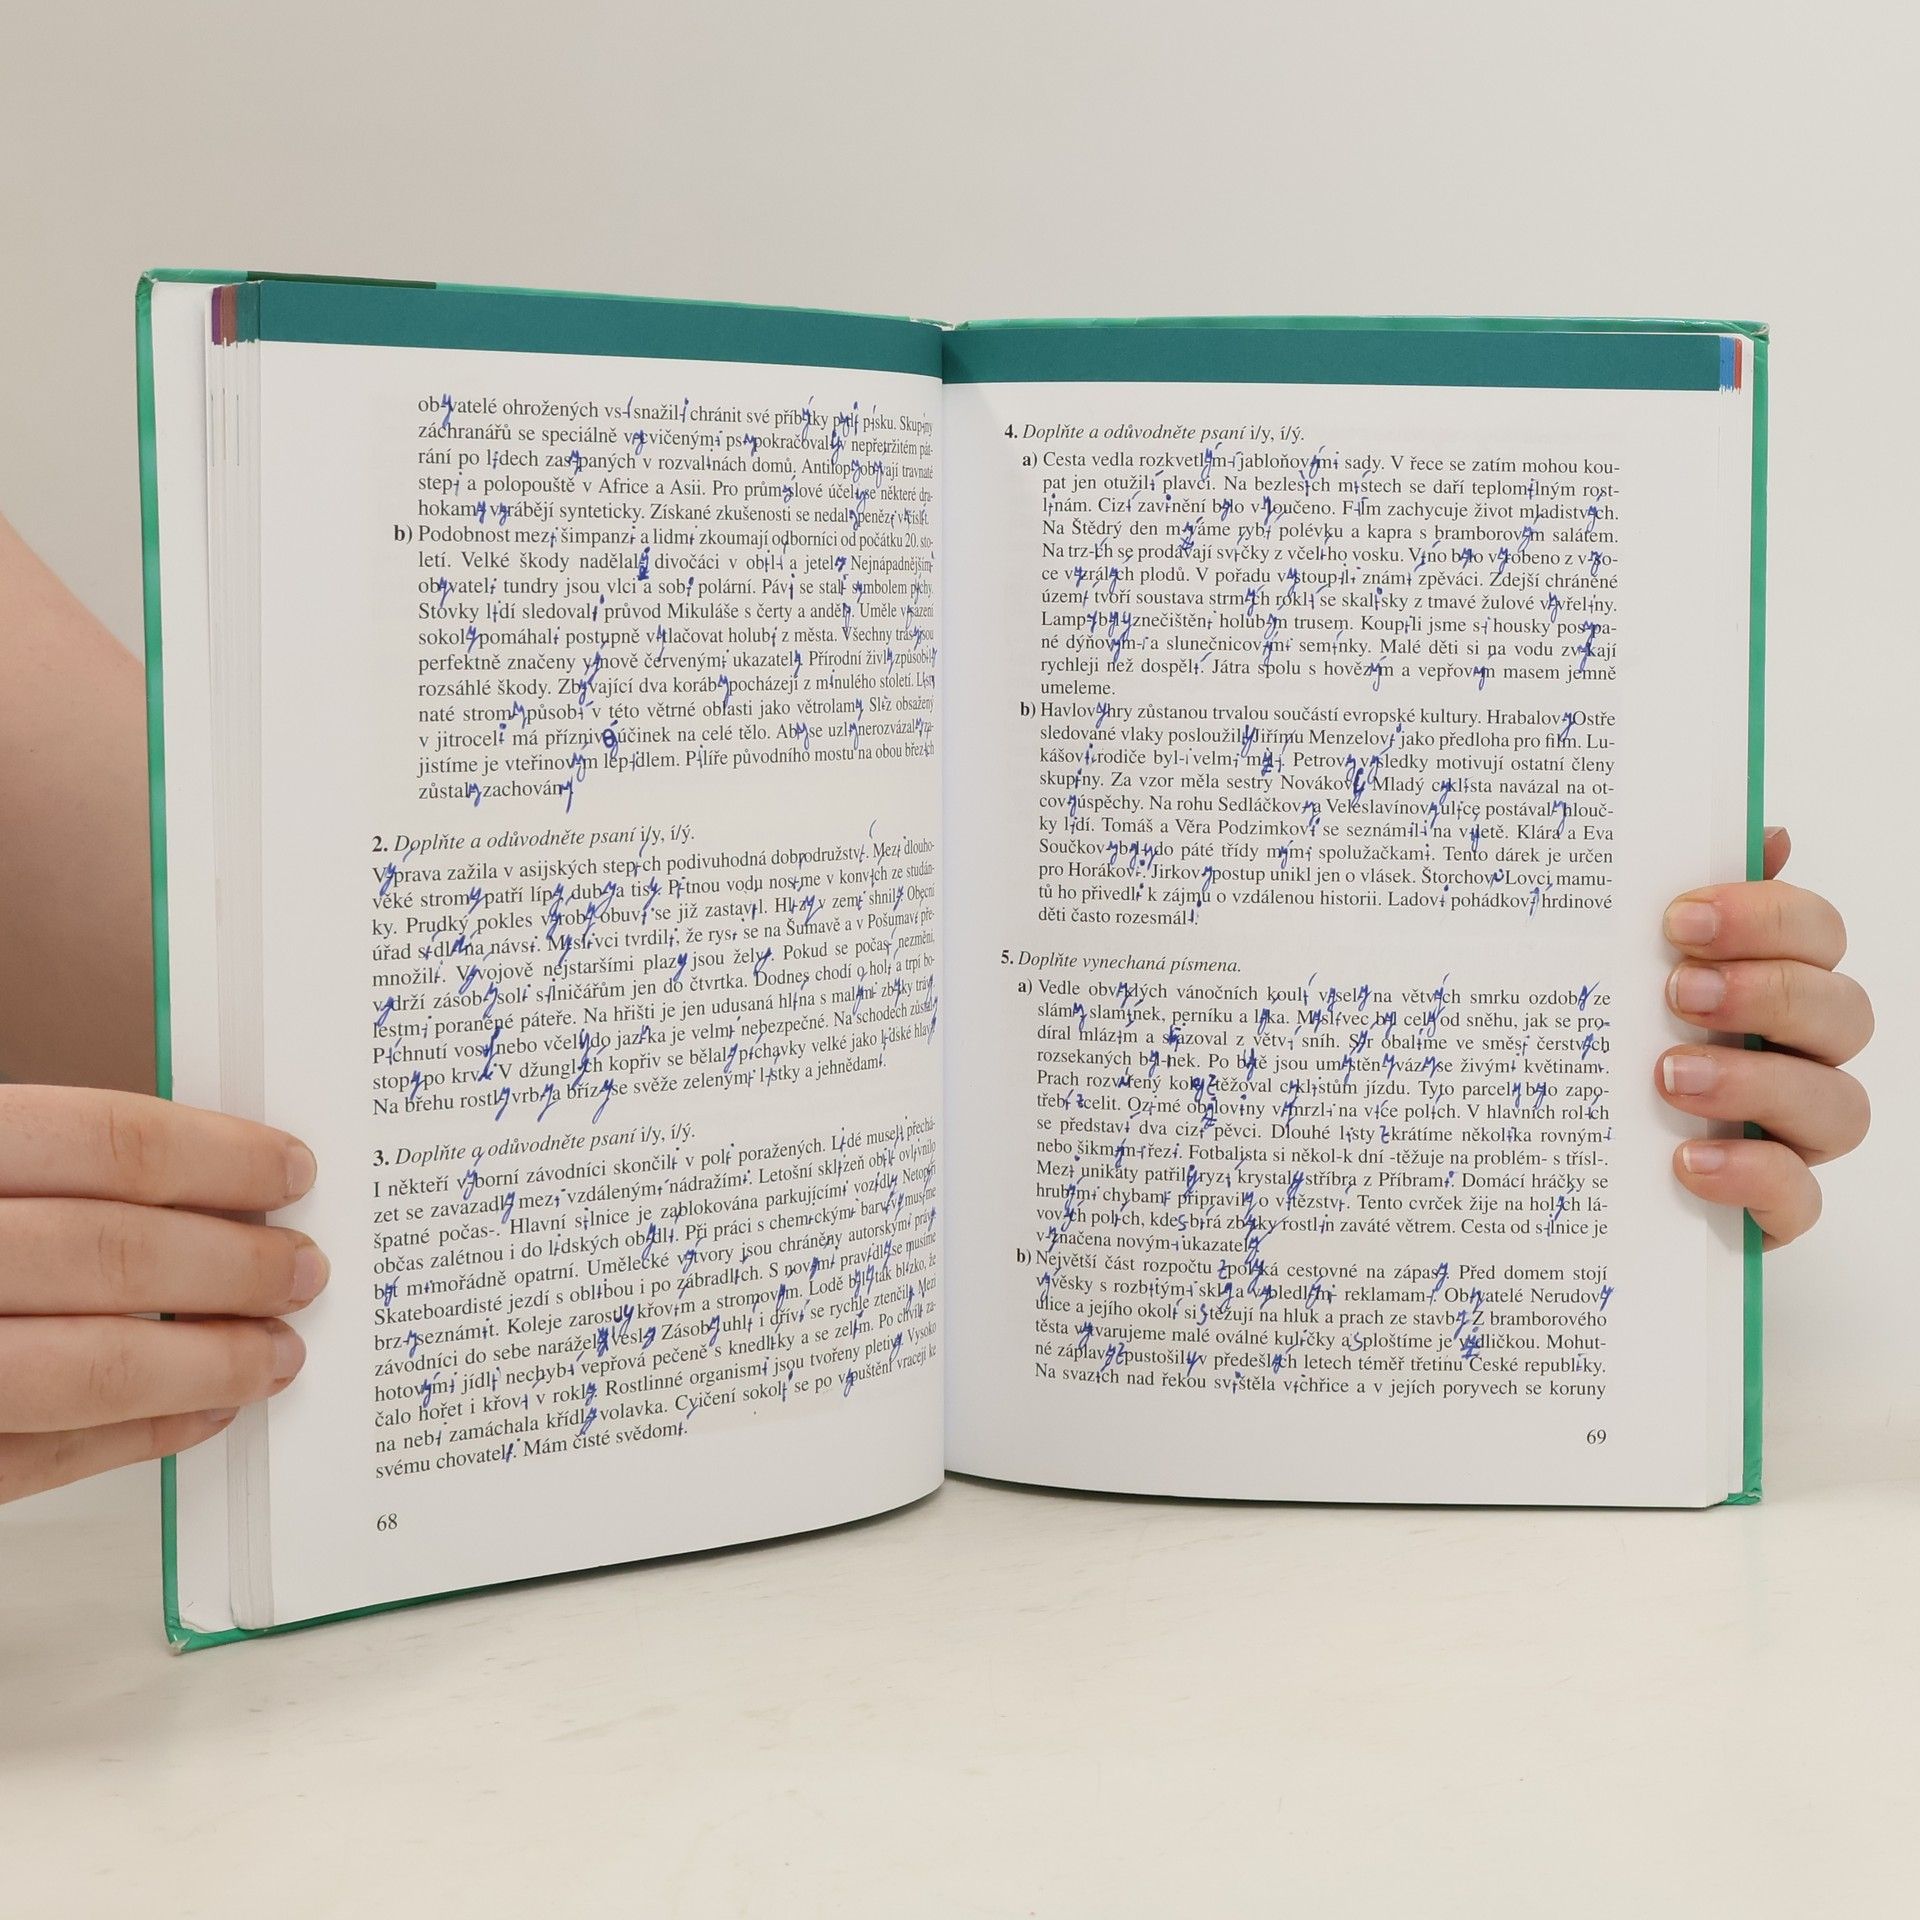 obyvatelé ohrožených vsí snažili chránit své příbytky pytli písku. Skupiny
záchranářů se speciálně vycvičenými psy pokračovaly v nepřetržitém pát-
rání po lidech zasypaných v rozvalinách domů. Antilopy obývají travnaté
stepi a polopouště v Africe a Asii. Pro průmyslové účely se některé dra-
hokamy vyrábějí synteticky. Získané zkušenosti se nedaly penězi vyčíslit.
b) Podobnost mezi šimpanzi a lidmi zkoumají odborníci od počátku 20. sto-
letí. Velké škody nadělali divočáci v obilí a jeteli. Nejnápadnějšími
obyvateli tundry jsou vlci a sobi polární. Pávi se stali symbolem pýchy.
Stovky lidí sledovali průvod Mikuláše s čerty a anděly. Uměle vysazení
sokoly pomáhali postupně vytlačovat holubi z města. Všechny trasy jsou
perfektně značeny výnově červenými ukazately. Přírodní živly způsobily
rozsáhlé škody. Zbývající dva koráby pocházejí z minulého století. List-
naté stromy působí v této větrné oblasti jako větrolamy. Sliz obsažený
v jitroceli má příznivé účinek na celé tělo. Aby se uzly nerozvázaly, za-
jistíme je vteřinovým lepidlem. Pilíře původního mostu na obou březích
zůstaly zachovány.
2. Doplňte a odůvodněte psaní i/y, í/ý.
Výprava zažila v asijských stepích podivuhodná dobrodružství. Mezi dlouho-
věké stromy patří lípy, duby a tisy. Pitnou vodu nosíme v konvích ze studán-
ky. Prudký pokles výroby obuvi se již zastavil. Hlízy v zemi shnily. Obecní
úřad sídlí na návsi. Myslivci tvrdili, že rysi se na Šumavě a v Pošumaví pře-
množili. Vývojově nejstaršími plazy jsou želvy. Pokud se počasí nezmění,
vydrží zásoby soli silničářům jen do čtvrtka. Dodnes chodí o holi a trpí bo-
lestmi poraněné páteře. Na hřišti je jen udusaná hlína s malými zbytky trávy.
Píchnutí vosy nebo včely do jazyka je velmi nebezpečné. Na schodech zůstaly
stopy po krvi. V džunglích kopřiv se bělaly pýchavky velké jako lidské hlavy.
Na břehu rostly vrby a břízy se svěže zelenými lístky a jehnědami.
3. Doplňte a odůvodněte psaní i/y, í/ý.
I někteří výborní závodníci skončili v poli poražených. Lidé museli přechá-
zet se zavazadly mezi vzdálenými nádražími. Letošní sklizeň obilí ovlivnilo
špatné počas-. Hlavní silnice je zablokována parkujícími vozidly. Netopýři
občas zalétnou i do lidských obydlí. Při práci s chemickými barvivy musíme
být mimořádně opatrní. Umělecké výtvory jsou chráněny autorskými právy.
Skateboardisté jezdí s oblibou i po zábradlích. S novými pravidly se musíme
brzy seznámit. Koleje zarostly křovím a stromovím. Lodě byly tak blízko, že
závodníci do sebe naráželi vesly. Zásoby uhlí i dříví se rychle ztenčily. Mezi
hotovými jídly nechybí vepřová pečeně s knedlíky a se zelím. Po chvíli za-
čalo hořet i křoví v rokli. Rostlinné organismy jsou tvořeny pletivy. Vysoko
na nebi zamáchala křídly volavka. Cvičení sokoli se po vypuštění vracejí ke
svému chovateli. Mám čisté svědomí.
68
4. Doplňte a odůvodněte psaní i/y, í/ý.
a) Cesta vedla rozkvetlými jabloňovými sady. V řece se zatím mohou kou-
pat jen otužilí plavci. Na bezlesích místech se daří teplomilným rost-
linám. Cizí zavinění bylo vyloučeno. Film zachycuje život mladistvých.
Na Štědrý den míváme rybí polévku a kapra s bramborovým salátem.
Na trzích se prodávají svíčky z včelího vosku. Víno bylo vyrobeno z vyso-
ce vyzrálých plodů. V pořadu vystoupili známí zpěváci. Zdejší chráněné
území tvoří soustava strmých roklí se skalisky z tmavé žulové vyvřeliny.
Lampy byly znečištěni holubím trusem. Koupili jsme si housky posypa-
né dýňovými a slunečnicovými semínky. Malé děti si na vodu zvykají
rychleji než dospělí. Játra spolu s hovězým a vepřovým masem jemně
umeleme.
b) Havlovy hry zůstanou trvalou součástí evropské kultury. Hrabalovy Ostře
sledované vlaky posloužily Jiřímu Menzelovi jako předloha pro film. Lu-
kášovi rodiče byli velmi milí. Petrovy výsledky motivují ostatní členy
skupiny. Za vzor měla sestry Novákovy. Mladý cyklista navázal na ot-
covy úspěchy. Na rohu Sedláčkovy a Veleslavínovy ulice postávaly hlouč-
ky lidí. Tomáš a Věra Podzimkovi se seznámili na výletě. Klára a Eva
Součkovy byly do páté třídy mými spolužačkami. Tento dárek je určen
pro Horákovi. Jirkovy postup unikl jen o vlásek. Štorchovi Lovci mamu-
tů ho přivedli k zájmu o vzdálenou historii. Ladovi pohádkoví hrdinové
děti často rozesmáli.
5. Doplňte vynechaná písmena.
a) Vedle obvyklých vánočních koulí vysely na větvích smrku ozdoby ze
slámy, slamínek, perníku a lýka. Myslivec byl celý od sněhu, jak se pro-
díral mlázím a srazoval z větví sníh. Sýr obalíme ve směsi čerstvých
rozsekaných bylinek. Po bytě jsou umístěny vázy se živými květinami.
Prach rozvířený koly ztěžoval cyklistům jízdu. Tyto parcely bylo zapo-
třebí zcelit. Ozimé obiloviny vymrzli na více polích. V hlavních rolích
se představí dva cizí pěvci. Dlouhé listy zkrátíme několika rovnými
nebo šikmými řezi. Fotbalista si několk-k dní -těžuje na problém- s třísl-.
Mezi unikáty patřily ryzí krystaly stříbra z Příbrami. Domácí hráčky se
hrubými chybami připravily o vítězství. Tento cvrček žije na holých lá-
vových polích, kde sbírá zbytky rostlin zaváté větrem. Cesta od silnice je
vyznačena novými ukazately.
b) Největší část rozpočtu zpolyká cestovné na zápasy. Před domem stojí
vývěsky s rozbitými skly a vybledlými reklamami. Obyvatelé Nerudovy
ulice a jejího okolí si stěžují na hluk a prach ze stavby. Z bramborového
těsta vytvarujeme malé oválné kuličky a sploštíme je vidličkou. Mohut-
né záplavy zpustošily v předešlých letech téměř třetinu České republiky.
Na svazích nad řekou svištěla vichřice a v jejích poryvech se koruny
69